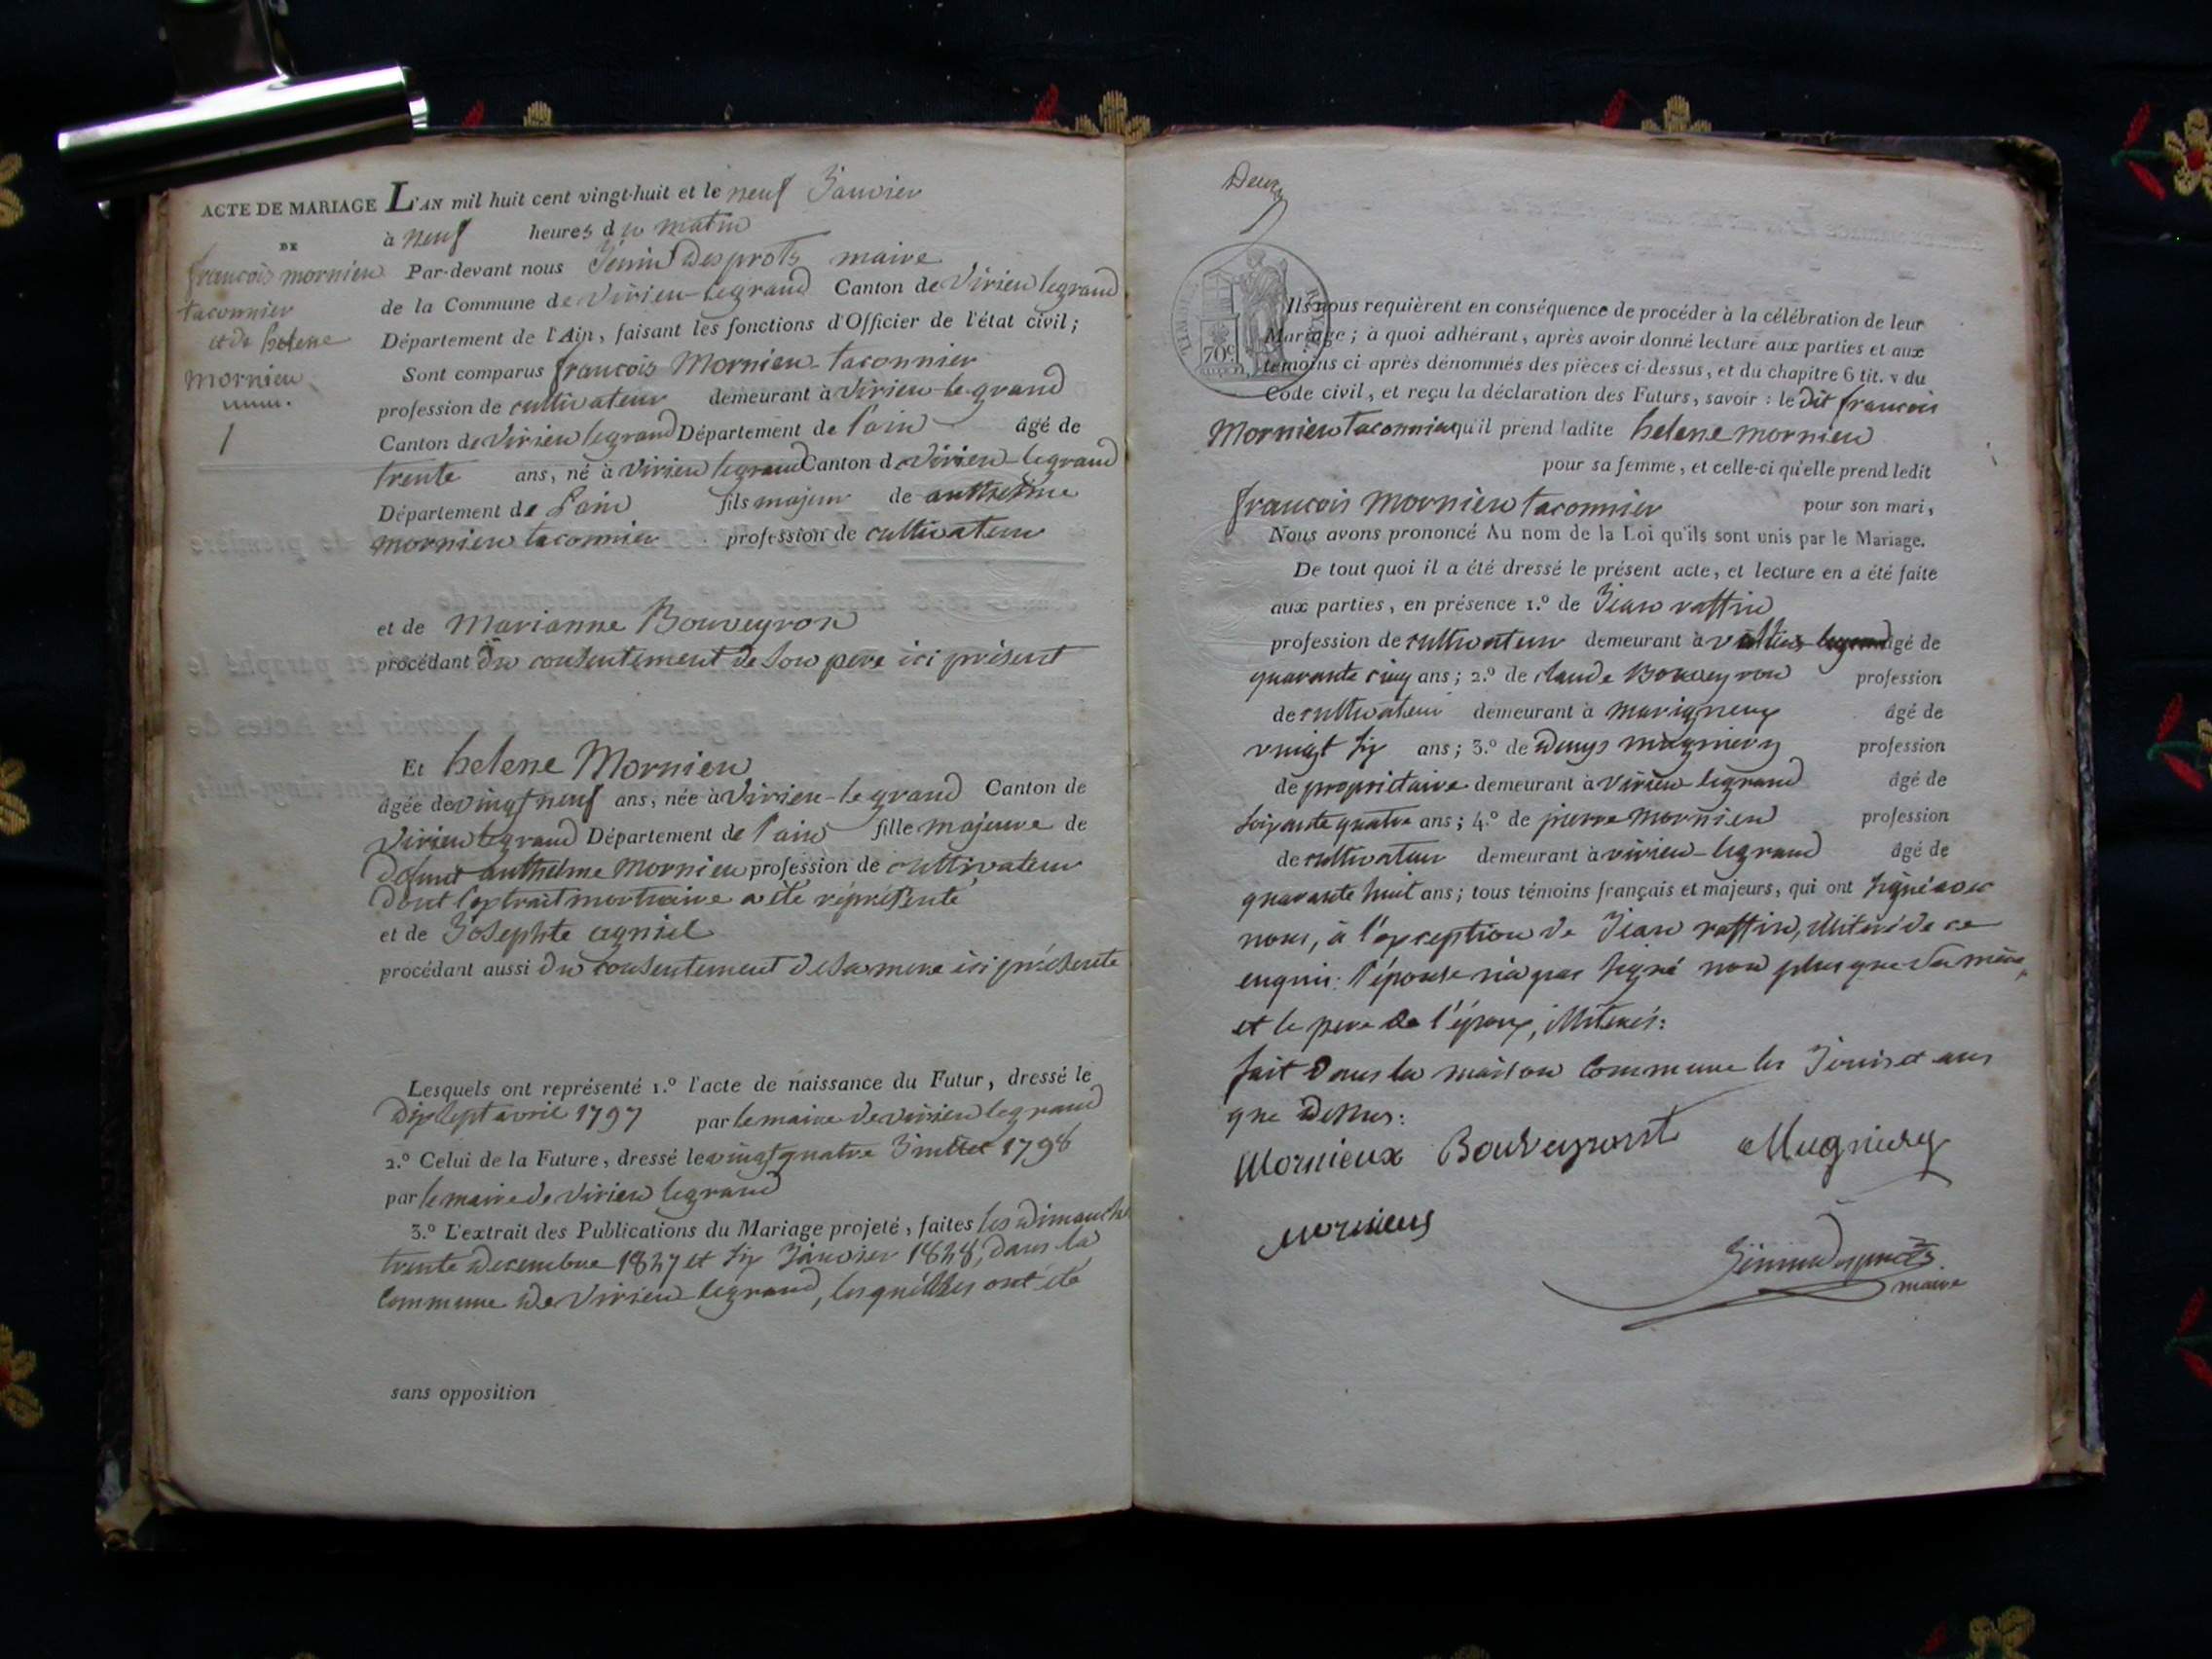 ACTE DE MARIAGE
DE
francois mornieu
taconnier
et de helene
mornieu
1
L'AN mil huit cent vingt-huit et le neuf Janvier
à neuf heures du matin
Par-devant nous Jenin Desprots maire
de la Commune de Virieu-legrand Canton de Virieu legrand
Département de l'Ain, faisant les fonctions d'Officier de l'état civil;
Sont comparus francois Mornieu-taconnier
profession de cultivateur demeurant à Virieu-le-grand
Canton de Virieu legrand Département de l'ain âgé de
trente ans, né à Virieu legrand Canton de Virieu-legrand
Département de l'ain fils majeur de anthelme
mornieu taconnier profession de cultivateur
et de Marianne Bouveyron
procédant du consentement de son pere ici présent
Et helene Mornieu
âgée de vingt neuf ans, née à Virieu-le grand Canton de
Virieu legrand Département de l'ain fille majeure de
défunt anthelme Mornieu profession de cultivateur
dont l'extrait mortuaire a été réprésenté
et de Josephte agniel
procédant aussi du consentement de sa mere ici présente
Lesquels ont représenté 1.º l'acte de naissance du Futur, dressé le
dix sept avril 1797 par le maire de virieu legrand
2.º Celui de la Future, dressé le vingt quatre Juillet 1798
par le maire de Virieu legrand
3.º L'extrait des Publications du Mariage projeté, faites les dimanche
trente decembre 1827 et six Janvier 1828, dans la
commune de Virieu legrand, lesquelles ont été
sans opposition
Deux
TIMBRE ROYAL
70c
Ils nous requièrent en conséquence de procéder à la célébration de leur
Mariage; à quoi adhérant, après avoir donné lecture aux parties et aux
témoins ci-après dénommés des pièces ci-dessus, et du chapitre 6 tit. v du
Code civil, et reçu la déclaration des Futurs, savoir : le dit francois
Mornieu taconnier qu'il prend ladite helene mornieu
pour sa femme, et celle-ci qu'elle prend ledit
francois mornieu taconnier pour son mari,
Nous avons prononcé Au nom de la Loi qu'ils sont unis par le Mariage.
De tout quoi il a été dressé le présent acte, et lecture en a été faite
aux parties, en présence 1.º de Jean raffin
profession de cultivateur demeurant à virieu legrand âgé de
quarante cinq ans; 2.º de claude Bouveyron profession
de cultivateur demeurant à marigneux âgé de
vingt six ans; 3.º de denys mugniery profession
de propriétaire demeurant à virieu legrand âgé de
soixante quatre ans; 4.º de pierre mornieu profession
de cultivateur demeurant à virieu-legrand âgé de
quarante huit ans; tous témoins français et majeurs, qui ont signé avec
nous, à l'exception de Jean raffin, illiteré de ce
enquis: l'épouse n'a pas signé non plus que sa mère,
et le pere de l'époux, illiterés:
fait dans la maison commune les Jours et ans
que dessus:
Mornieux Bouveyront Mugniery
mornieux
Jenin Desprots
maire